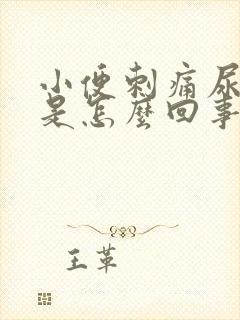 小便刺痛尿
是怎麼回事
王革